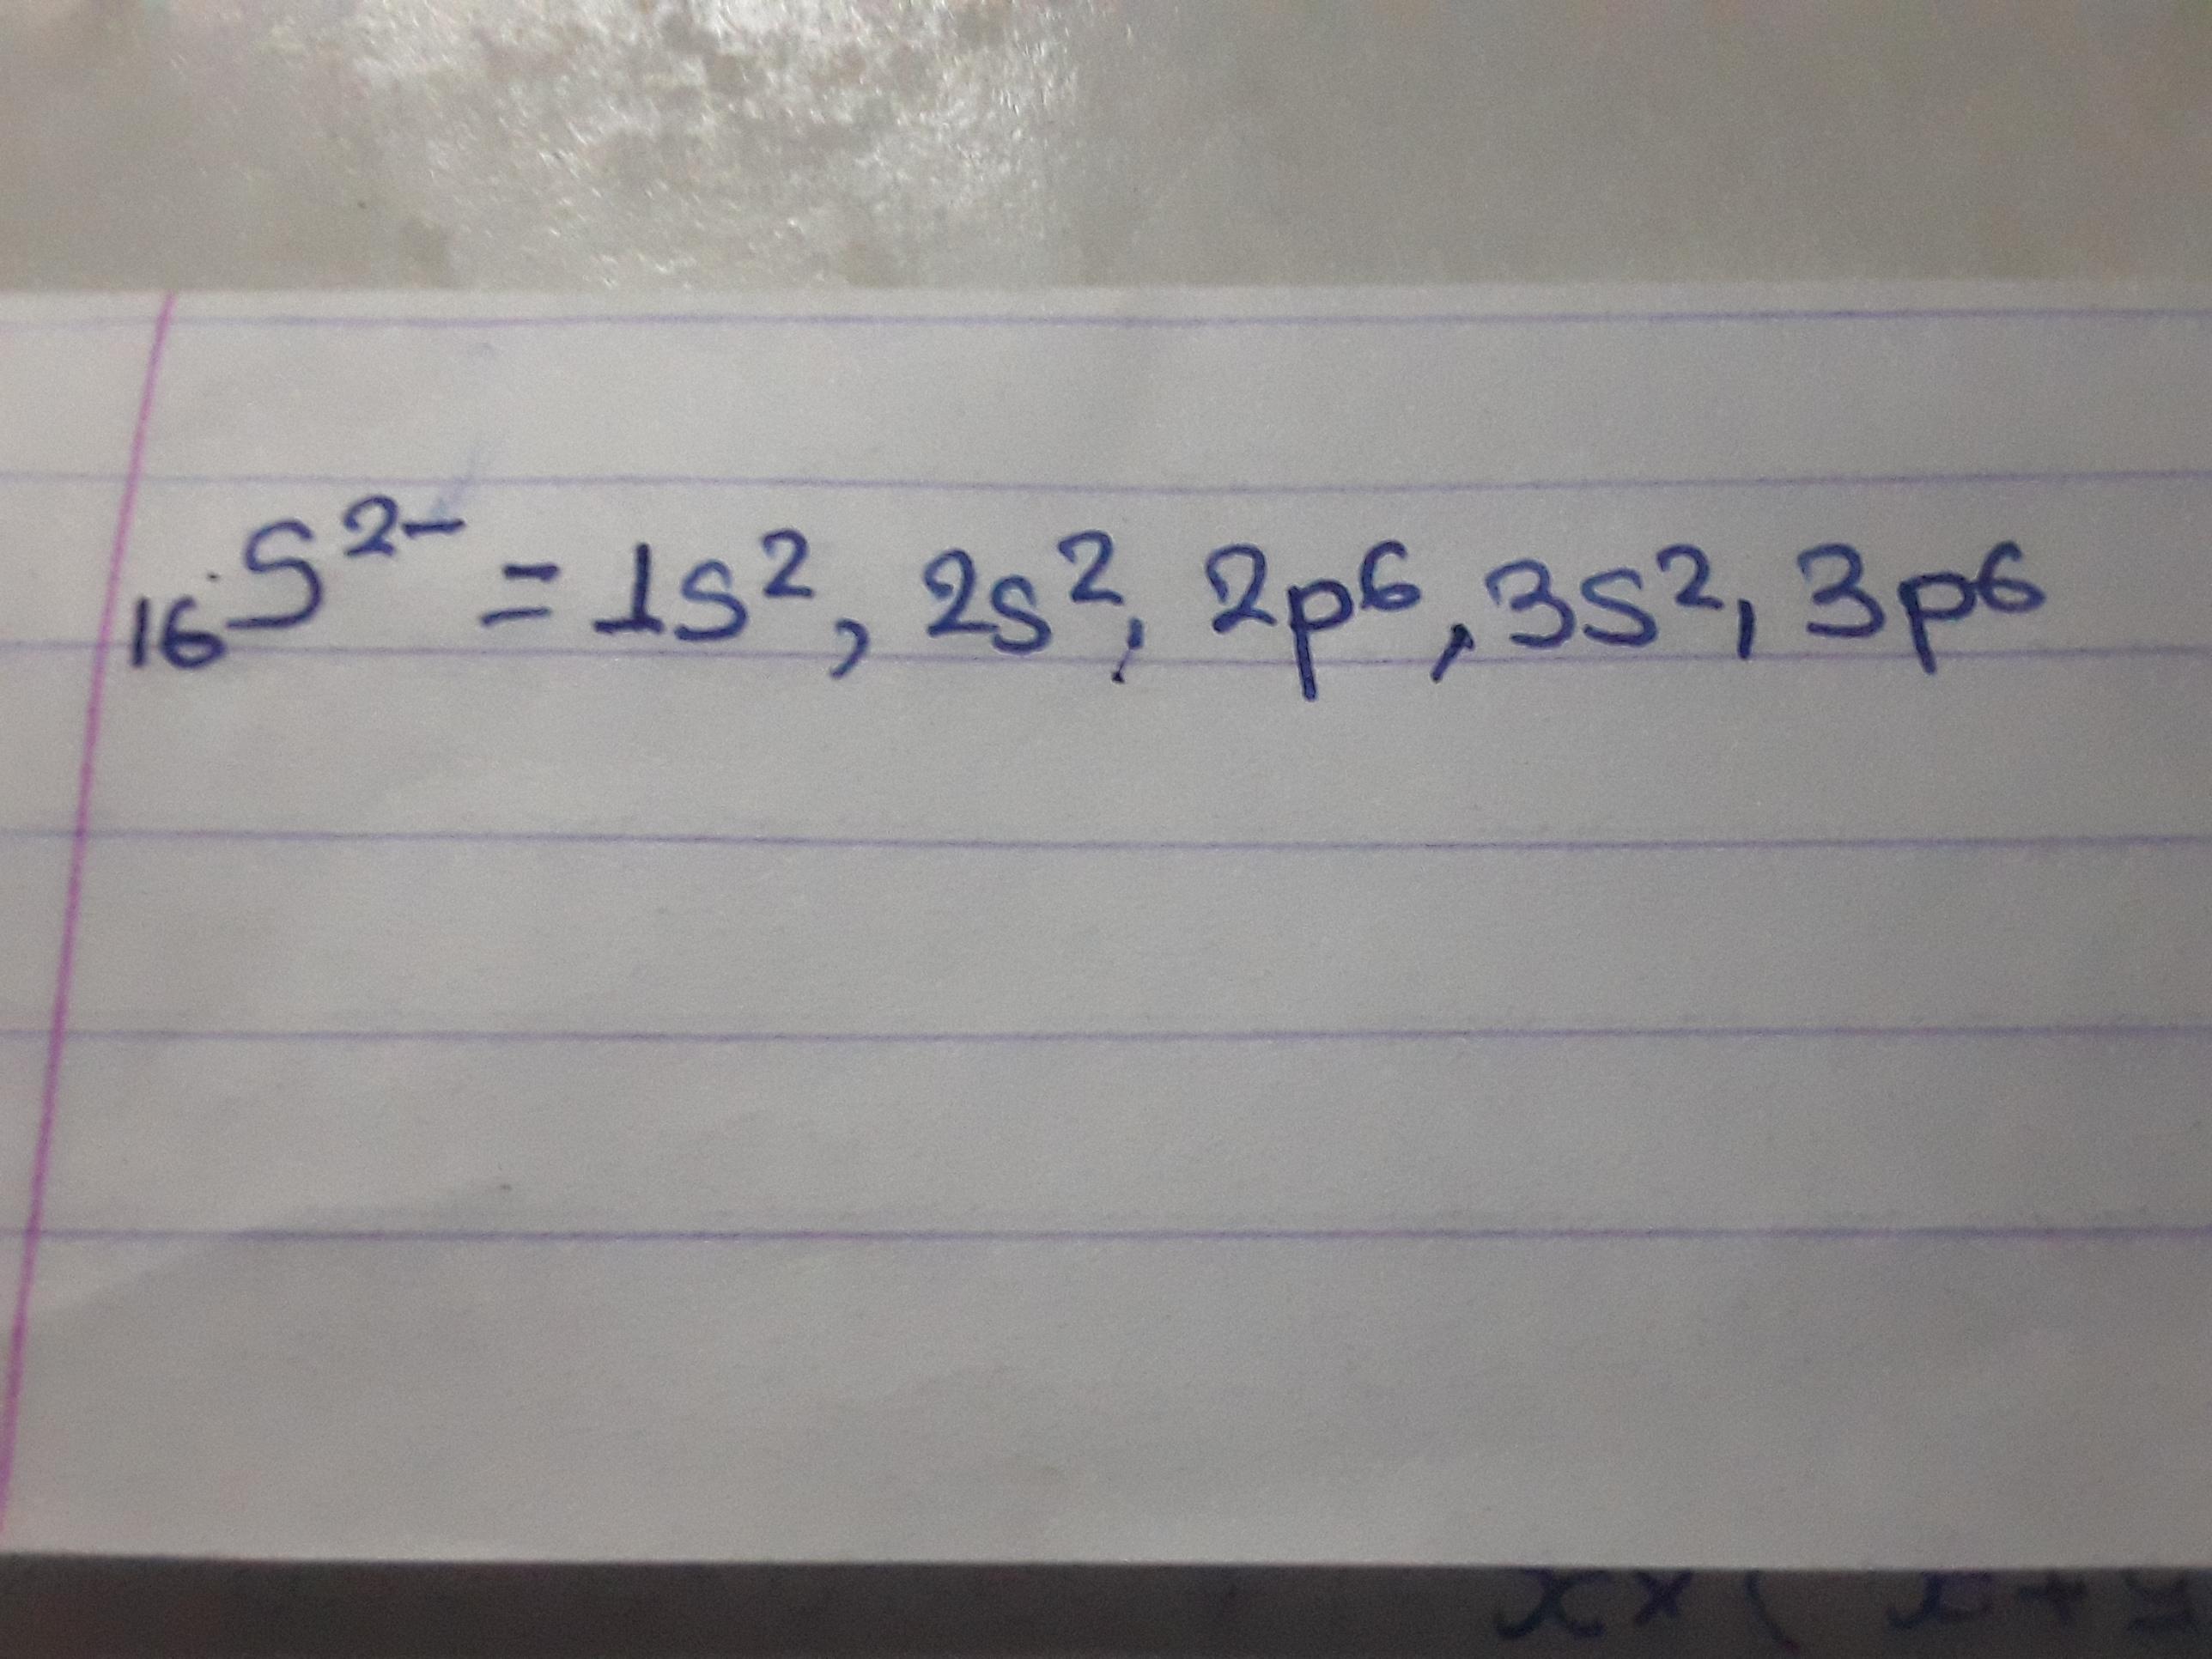 ₁₆S²⁻ = 1s², 2s², 2p⁶, 3s², 3p⁶
x×( x+y